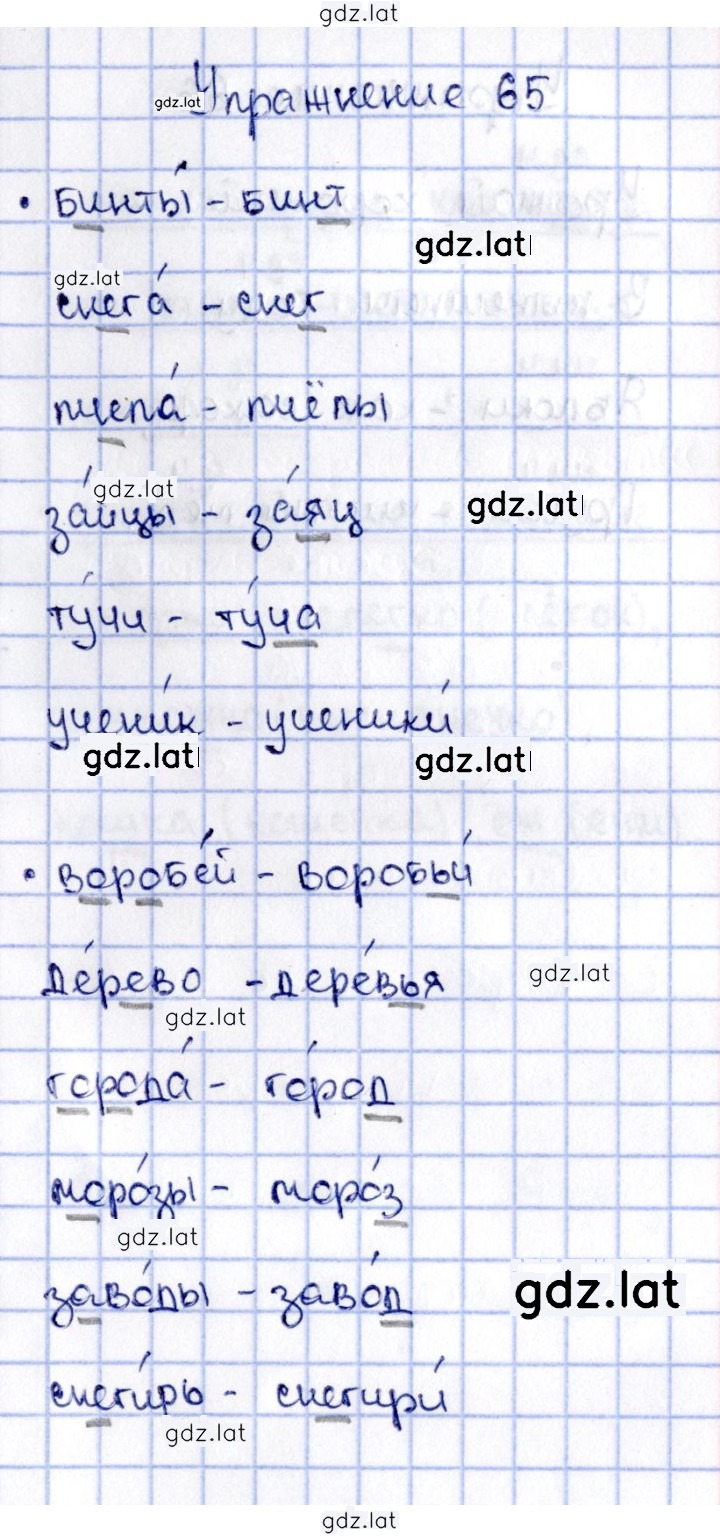 gdz.lat
gdz.lat Упражнение 65
• бинты́ – бинт
gdz.lat
gdz.lat
снега́ – снег
пчела́ – пчёлы
gdz.lat
за́йцы – за́яц
gdz.lat
ту́чи – ту́ча
учени́к – ученики́
gdz.lat
gdz.lat
• воробе́й – воробьи́
де́рево – дере́вья
gdz.lat
gdz.lat
города́ – го́род
моро́зы – моро́з
gdz.lat
заво́ды – заво́д
gdz.lat
снеги́рь – снегири́
gdz.lat
gdz.lat